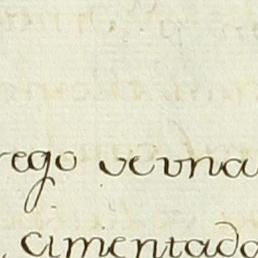 rego de vna
cimentado